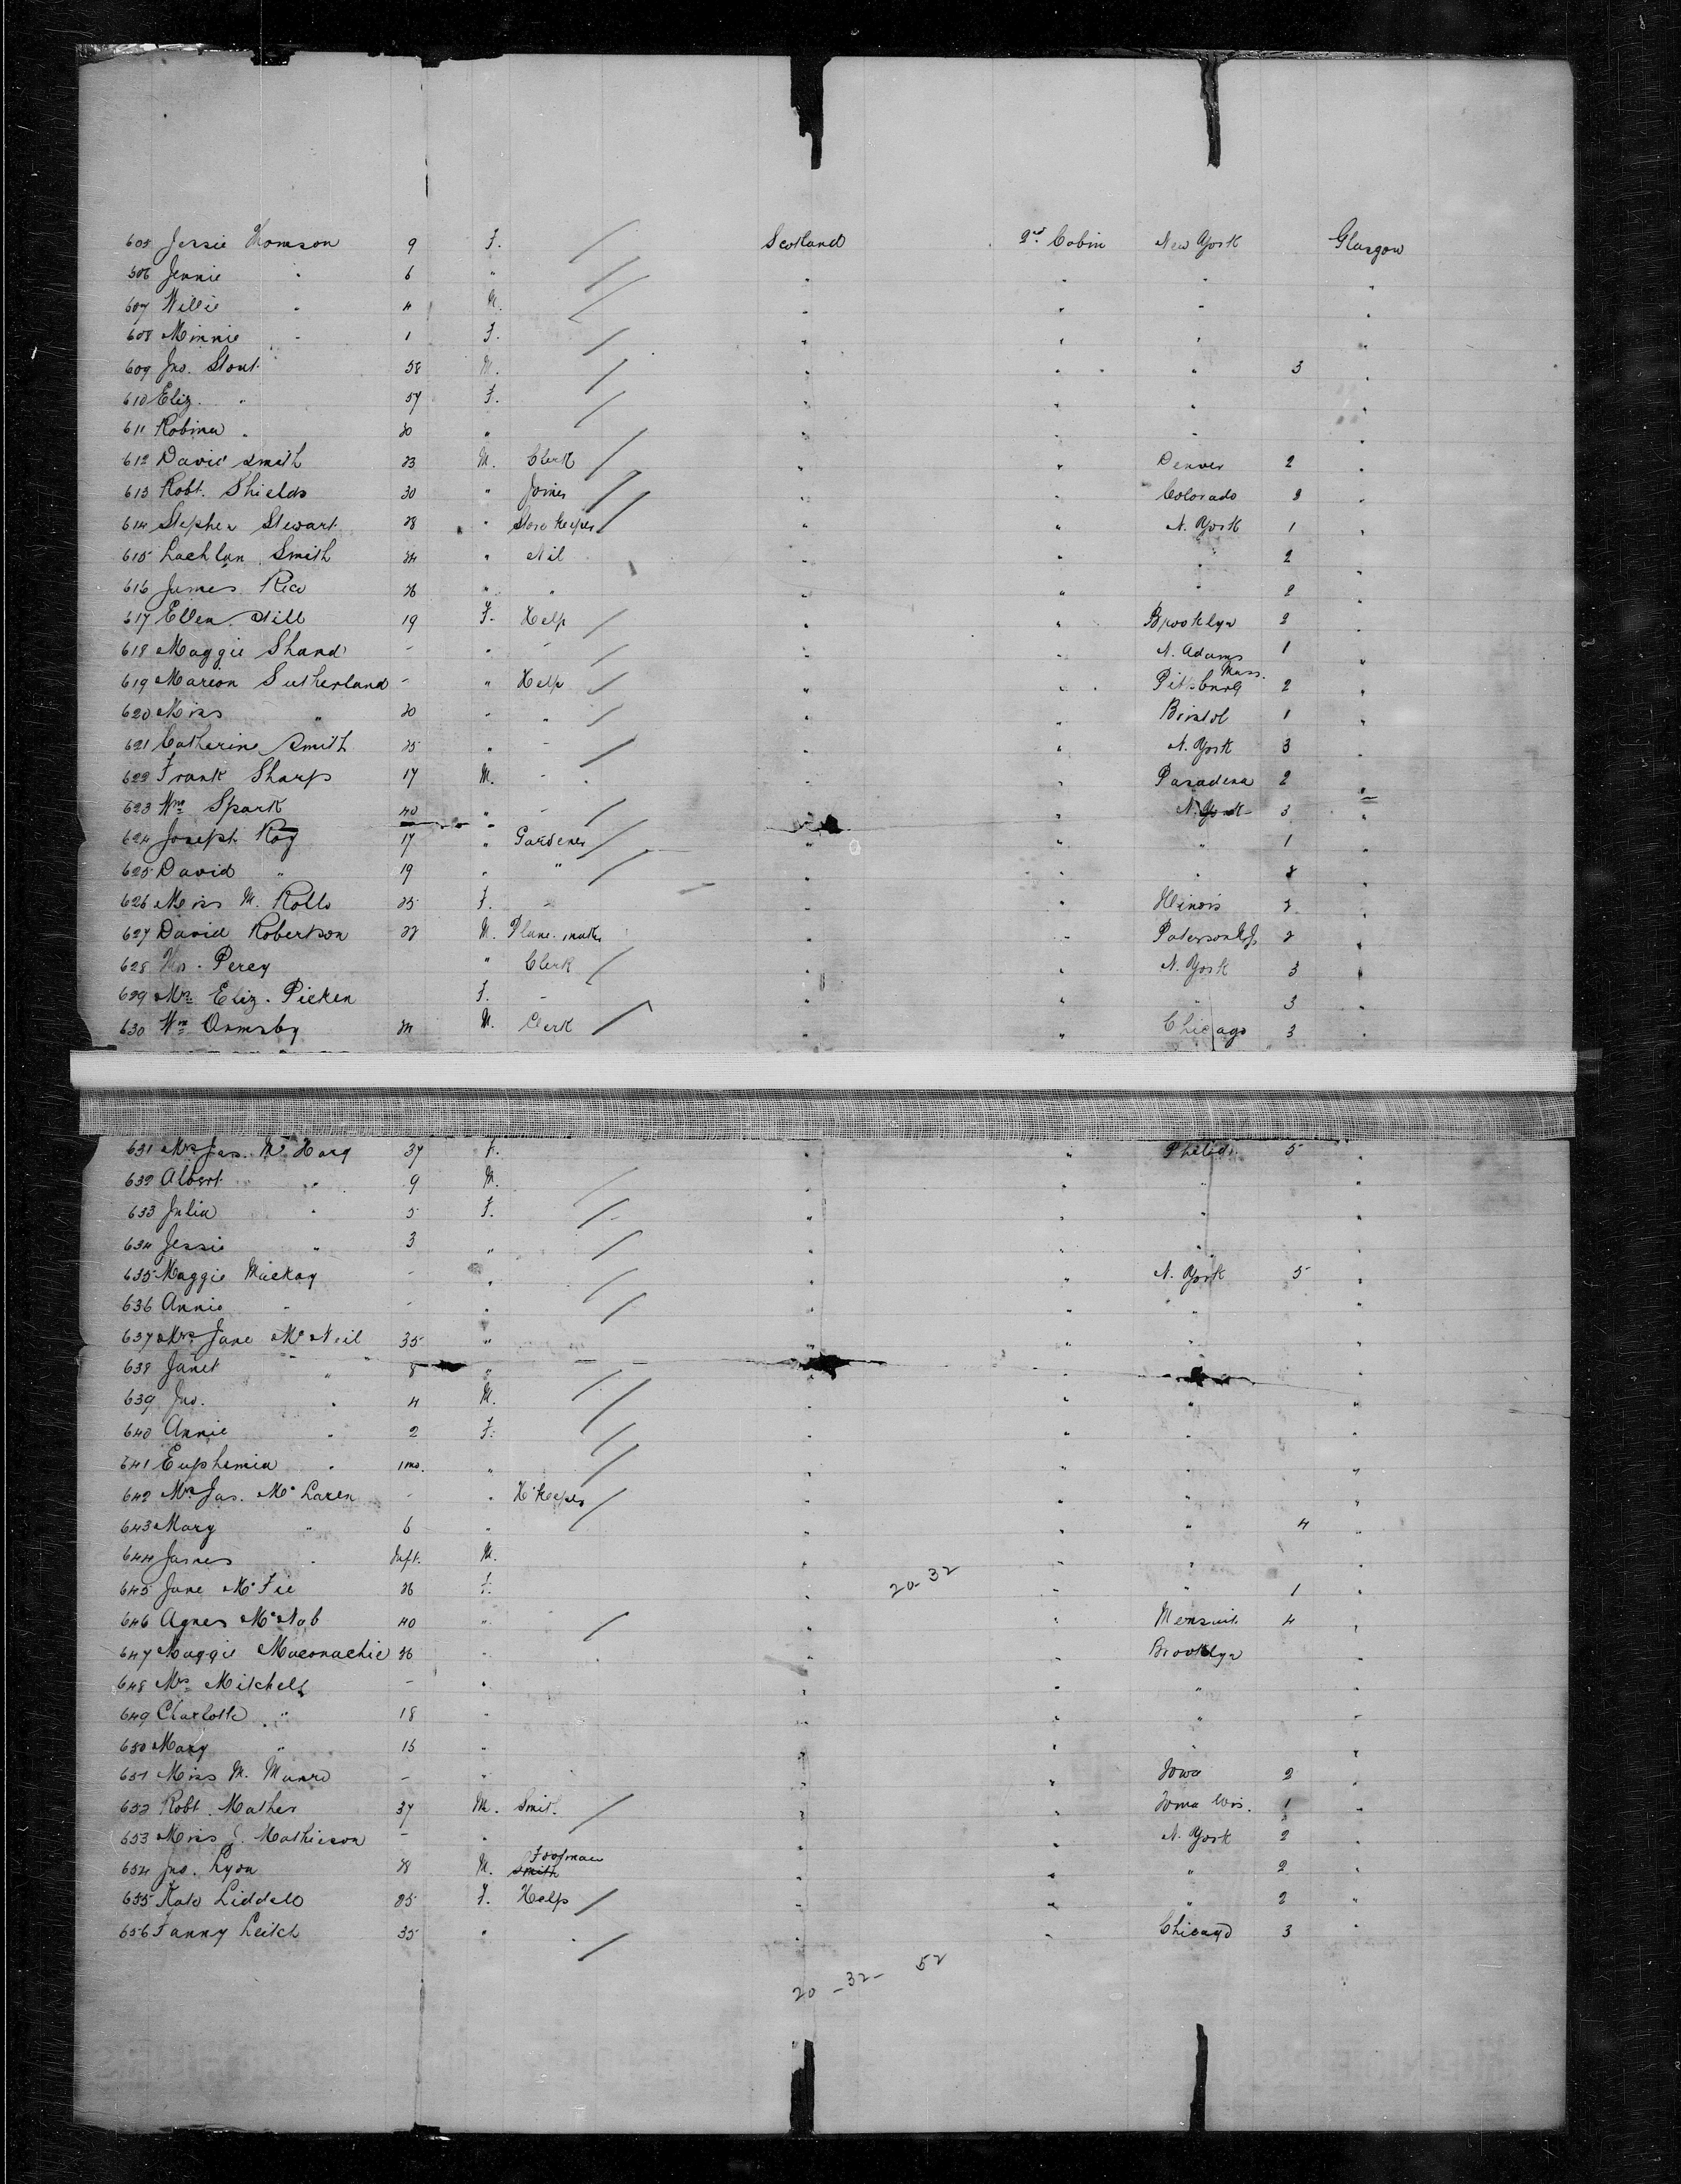 605 Jessie Thomson 9 F. Scotland 2nd Cabin New York Glasgow
606 Jennie " 6 " " " " "
607 Willie " 4 M. " " " "
608 Minnie " 1 F. " " " "
609 Jno. Stout 58 M. " " " 3 "
610 Eliz. " 57 F. " " " "
611 Robina " 20 " " " " "
612 David Smith 23 M. Clerk " " Denver 2 "
613 Robt. Shields 30 " Joiner " " Colorado 2 "
614 Stephen Stewart 28 " Store Keeper " " N. York 1 "
615 Lachlan Smith 24 " Nil " " " 2 "
616 James Rew 26 " " " " " 2 "
617 Ellen Still 19 F. Help " " Brooklyn 2 "
618 Maggie Shand - " - " " N. Adams 1 "
Mass.
619 Marion Sutherland - " Help " " Pittsburg 2 "
620 Miss " 20 " " " " Bristol 1 "
621 Catherine Smith 25 " - " " N. York 3 "
622 Frank Sharp 17 M. - " " Pasadena 2 "
623 Wm Spark 40 " - " " N. York 3 "
624 Joseph Roy 17 " Gardener " " " 1 "
625 David " 19 " " " " " 2 "
626 Miss M. Rollo 25 F. - " " Illinois 2 "
627 David Robertson 22 M. Plane maker " " Paterson N.J. 2 "
628 Percy " Clerk " " N. York 3 "
629 Mrs Eliz. Picken F. - " " " 3 "
630 Wm Ormsby 24 M. Clerk " " Chicago 3 "
631 Mrs Jas. Mc Harg 37 F. " " Philad. 5 "
632 Albert " 9 M. " " " "
633 Julia " 5 F. " " " "
634 Jessie " 3 " " " " "
635 Maggie Mackay - " " " N. York 5 "
636 Annie " - " " " " "
637 Mrs Jane Mc Neil 35 " " " " "
638 Janet " 8 " " " " "
639 Jno. " 4 M. " " " "
640 Annie " 2 F. " " " "
641 Euphemia " 1 mo. " " " " "
642 Mrs Jas. Mc Laren - " H'Keeper " " " "
643 Mary " 6 " " " " 4 "
644 James " Inft. M. " " " "
645 Jane Mc Fie 26 F. 20-32 " " 1 "
646 Agnes Mc Nab 40 " " " 4 "
647 Maggie Maconachie 26 " " " Brooklyn
648 Mrs Mitchell - " " " " "
649 Charlotte " 18 " " " " "
650 Mary " 15 " " " " "
651 Miss M. Munro - " " " Iowa 2 "
652 Robt. Mather 37 M. Smith " " Wis. 1 "
653 Miss Mathieson - " " " N. York 2 "
654 Jno. Lyon 28 M. Smith " " " 2 "
655 Kate Liddell 25 F. Help " " " 2 "
656 Fanny Leitch 35 " " " " Chicago 3 "
20 - 32 - 52